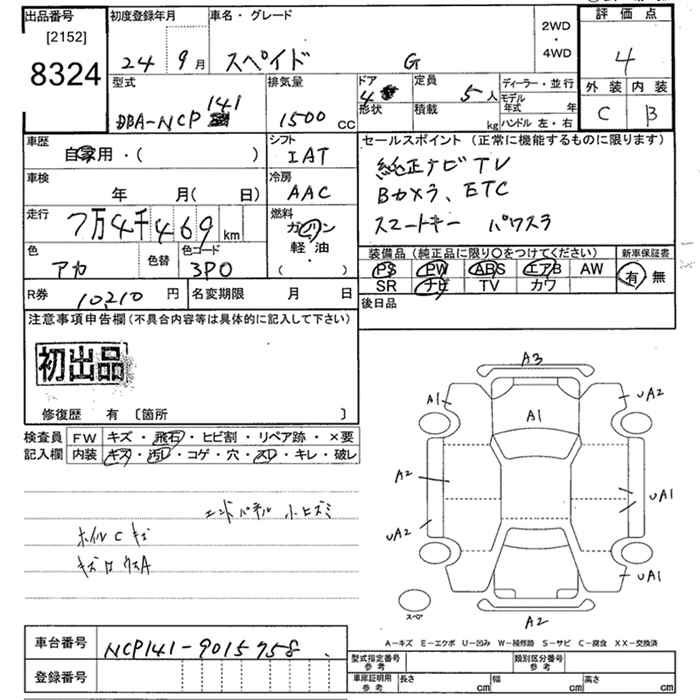 出品番号
[2152]
8324
初度登録年月
24 9月
車名・グレード
スペイド G
2WD
・
4WD
評価点
4
外装 内装
C B
型式
DBA-NCP141
排気量
1500 cc
ドア
4
形状
定員
5人
積載
kg
ディーラー・並行
モデル年式 年
ハンドル 左・右
車歴
自家用・( )
シフト
IAT
車検
年 月( 日)
冷房
AAC
走行
7万4千469km
燃料
ガソリン
軽・油
( )
色
アカ
色替
色コード
3P0
R券 10,210 円
名変期限 月 日
セールスポイント (正常に機能するものに限ります)
純正ナビ TV
Bカメラ、ETC
スマートキー パワスラ
装備品 (純正品に限り○をつけてください)
PS PW ABS エアB AW
SR ナビ TV カワ
新車保証書
有 無
後日品
注意事項申告欄 (不具合内容等は具体的に記入して下さい)
初出品
修復歴 有 〔箇所 〕
検査員記入欄
FW キズ・飛石・ヒビ割・リペア跡・×要
内装 キズ・汚レ・コゲ・穴・スレ・キレ・破レ
エンドパネル 小ヒズミ
ホイルCキズ
A3
A1
UA2
A1
A2
UA1
UA2
UA1
A2
スペア
A－キズ E－エクボ U－凹み W－補修跡 S－サビ C－腐食 XX－交換済
車台番号 NCP141-9015758
登録番号
型式指定番号 参考
類別区分番号 参考
車庫証明用 参考
長さ cm 幅 cm 高さ cm